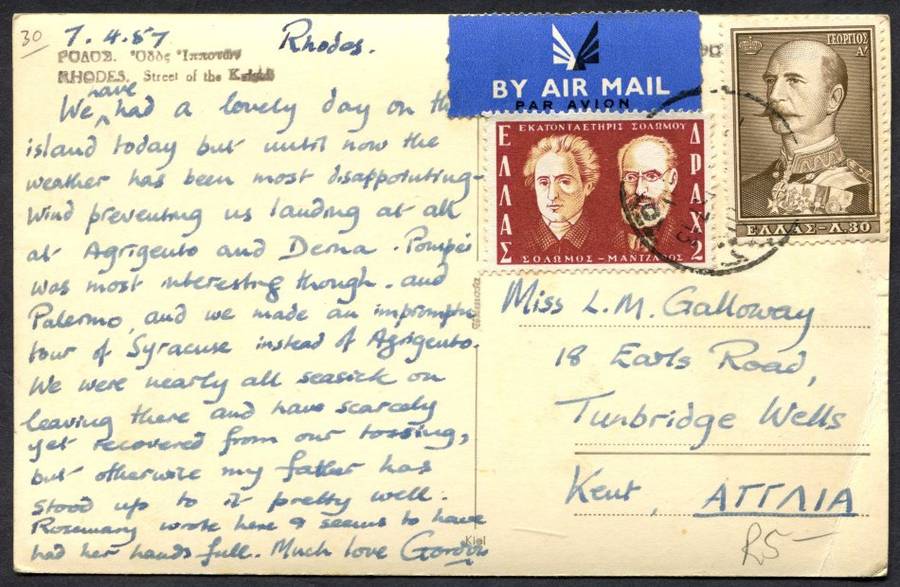 30
7.4.57 Rhodes.
ΡΟΔΟΣ. Ὁδὸς Ἱπποτῶν
RHODES. Street of the
We have had a lovely day on the
island today but until now the
weather has been most disappointing -
Wind preventing us landing at all
at Agrigento and Derna. Pompei
was most interesting though. and
Palermo, and we made an impromptu
tour of Syracuse instead of Agrigento.
We were nearly all seasick on
leaving there and have scarcely
yet recovered from our tossing,
but otherwise my father has
stood up to it pretty well.
Rosemary wrote here & seems to have
had her hands full. Much love Gordon
BY AIR MAIL
PAR AVION
ΕΚΑΤΟΝΤΑΕΤΗΡΙΣ ΣΟΛΩΜΟΥ
ΕΛΛΑΣ
ΔΡΑΧ 2
ΣΟΛΩΜΟΣ - ΜΑΝΤΖΑΡΟΣ
ΓΕΩΡΓΙΟΣ
Α!
ΕΛΛΑΣ-Λ.30
Miss L.M. Galloway
18 Earls Road,
Tunbridge Wells
Kent, ΑΓΓΛΙΑ
Kiel
R5-